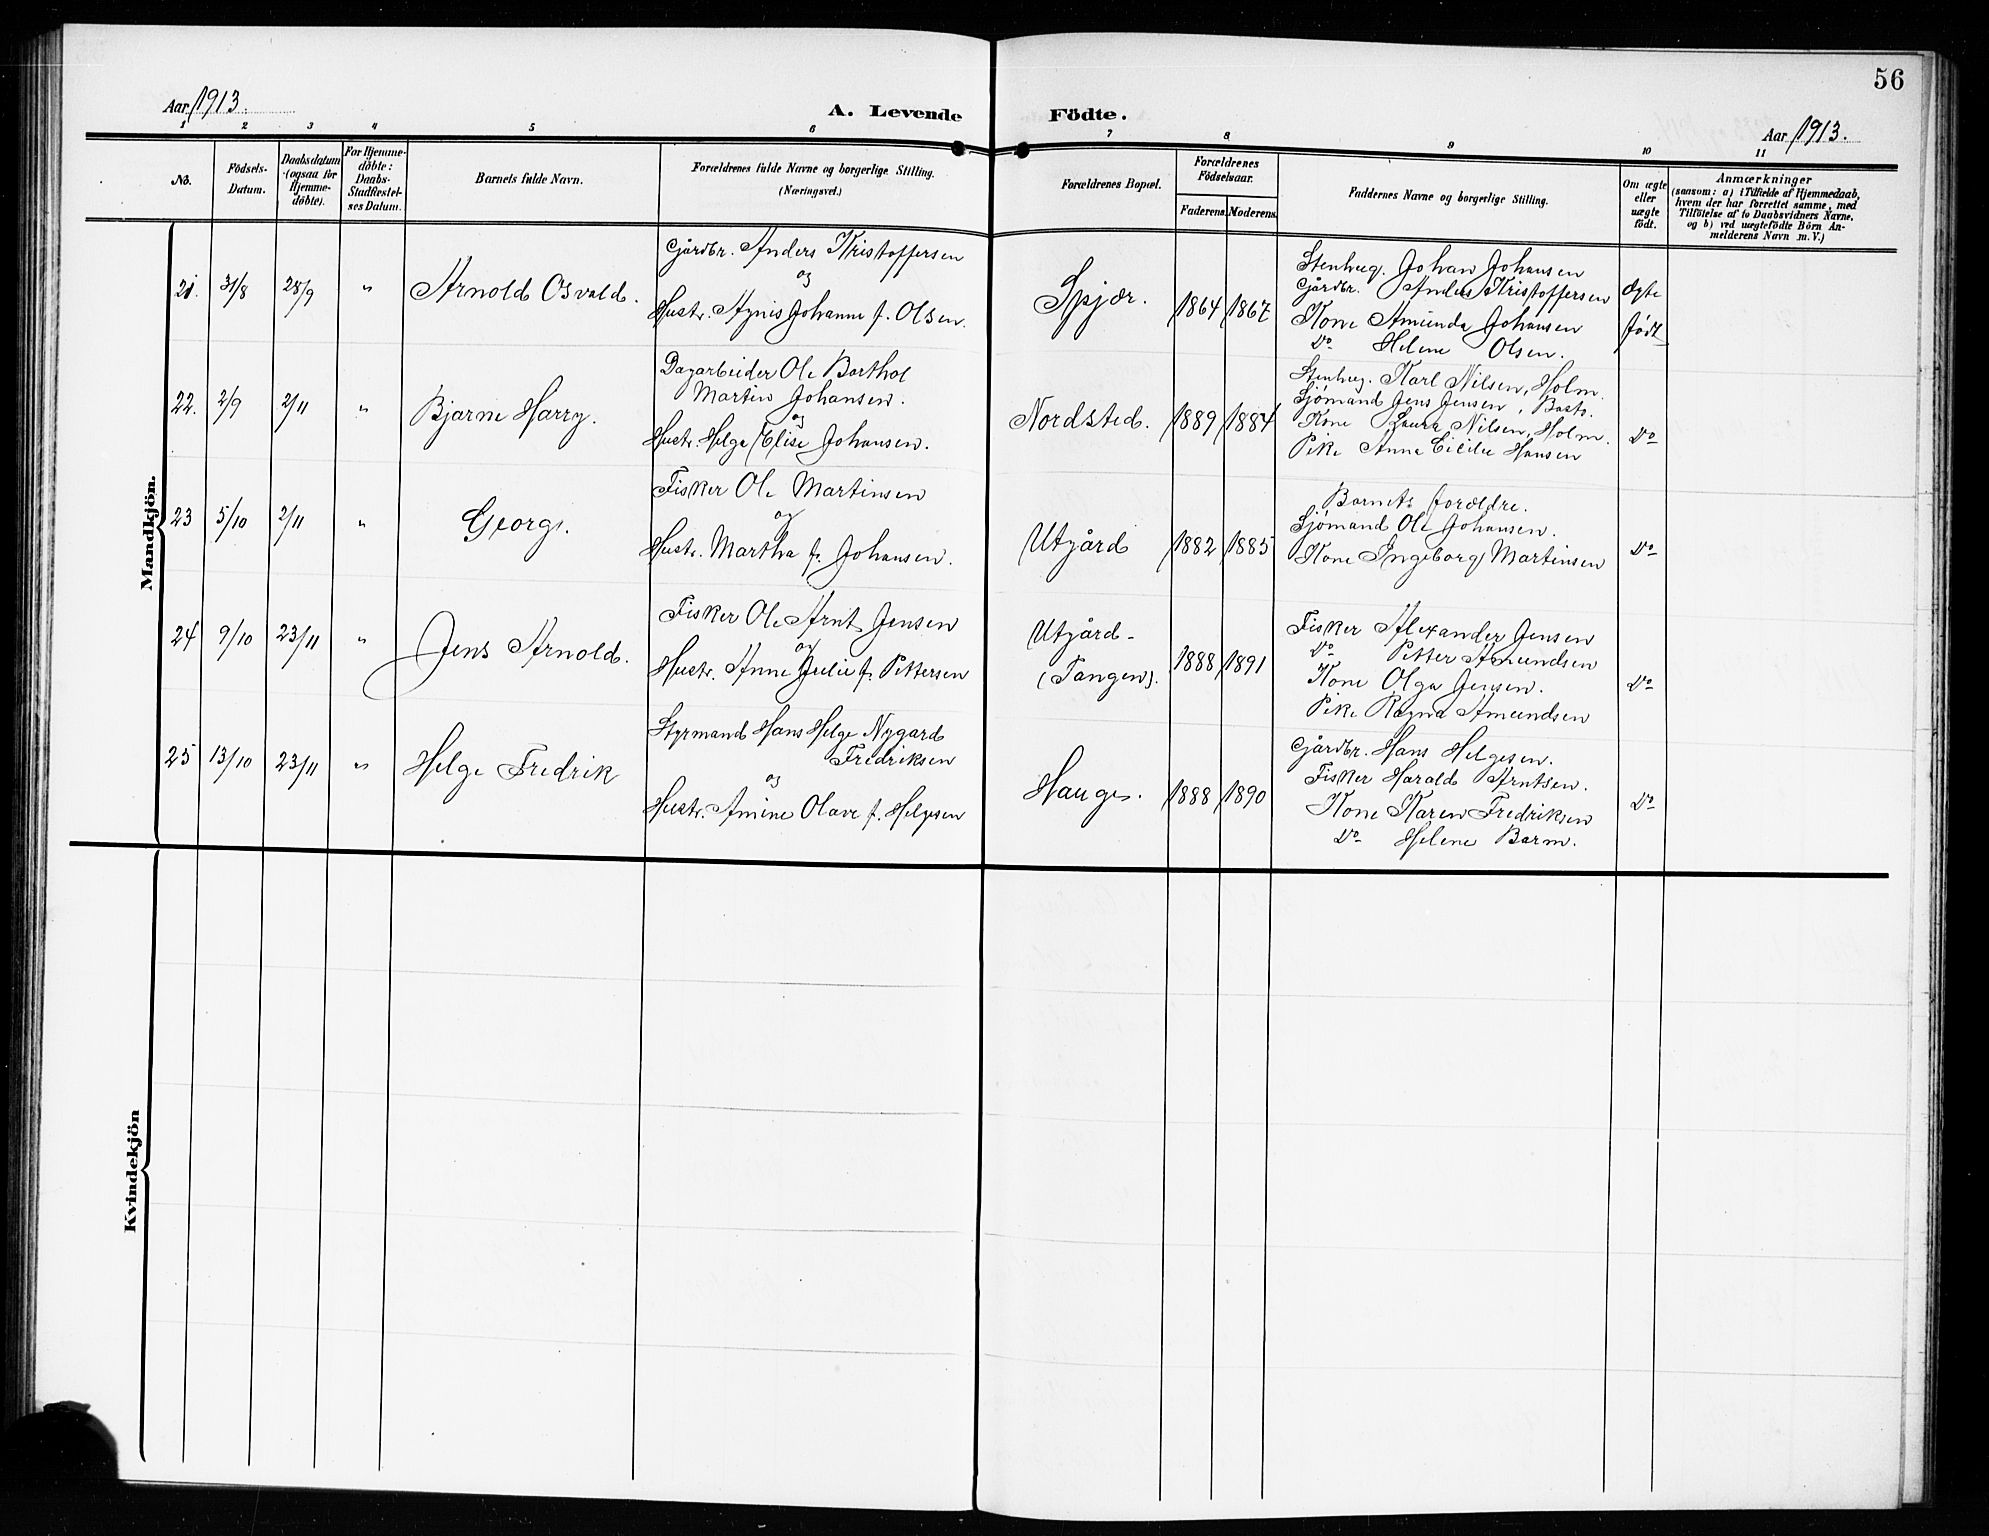 56
Aar 1913.
A. Levende Födte.
Aar 1913.
1 2 3 4 5 6 7 8 9 10 11
No.
Födsels-
Datum.
Daabsdatum
(ogsaa for
Hjemme-
döbte).
For Hjemme-
döbte:
Daabs-
Stadfæstel-
ses Datum.
Barnets fulde Navn.
Forældrenes fulde Navne og borgerlige Stilling.
(Næringsvei.)
Forældrenes Bopæl.
Forældrenes
Födselsaar.
Faderens. Moderens.
Faddernes Navne og borgerlige Stilling.
Om ægte
eller
uægte
födt.
Anmærkninger
(saasom: a) i Tilfælde af Hjemmedaab,
hvem der har forrettet samme, med
Tilföielse af to Daabsvidners Navne,
og b) ved uægtefödte Börn An-
melderens Navn m. V.)
Mandkjön.
21. 31/8 28/9 " Arnold Osvald.
Gårdbr. Anders Kristoffersen
og
Hustr. Agnis Johanne f. Olsen.
Spjær. 1864 1867
Stenhug. Johan Johansen
Gårdbr. Anders Kristoffersen
Kone Amunda Johansen
Do Helene Olsen.
ægte
født
22. 2/9 2/11 " Bjarne Harry.
Dagarbeider Ole Barthol
Martin Johansen.
og
Hustr. Helga Elise Johansen.
Nordsted. 1889 1884
Stenhug. Karl Nilsen, Holm.
Sjømand Jens Jensen,
Kone Laura Nilsen, Holm.
Pike Anna Cicilie Hansen
Do
23 5/10 2/11 " Georg.
Fisker Ole Martinsen
og
Hustr. Martha f. Johansen.
Utgård 1882 1885
Barnets forældre.
Sjømand Ole Johansen.
Kone Ingeborg Martinsen
Do
24 9/10 23/11 " Jens Arnold.
Fisker Ole Arnt Jensen
og
Hustr. Anne Julie f. Pettersen
Utgård-
(Tangen). 1888 1891
Fisker Alexander Jensen
Do Petter Amundsen
Kone Olga Jensen.
Pike Ragna Amundsen
Do
25 13/10 23/11 " Helge Fredrik
Styrmand Hans Helge Nygard
Fredriksen
og
Hustr. Amine Olave f. Helgesen
Hauge. 1888 1890
Gårdbr. Hans Helgesen.
Fisker Harald Arntsen.
Kone Karen Fredriksen
Do Helene Barm.
Do
Kvindekjön